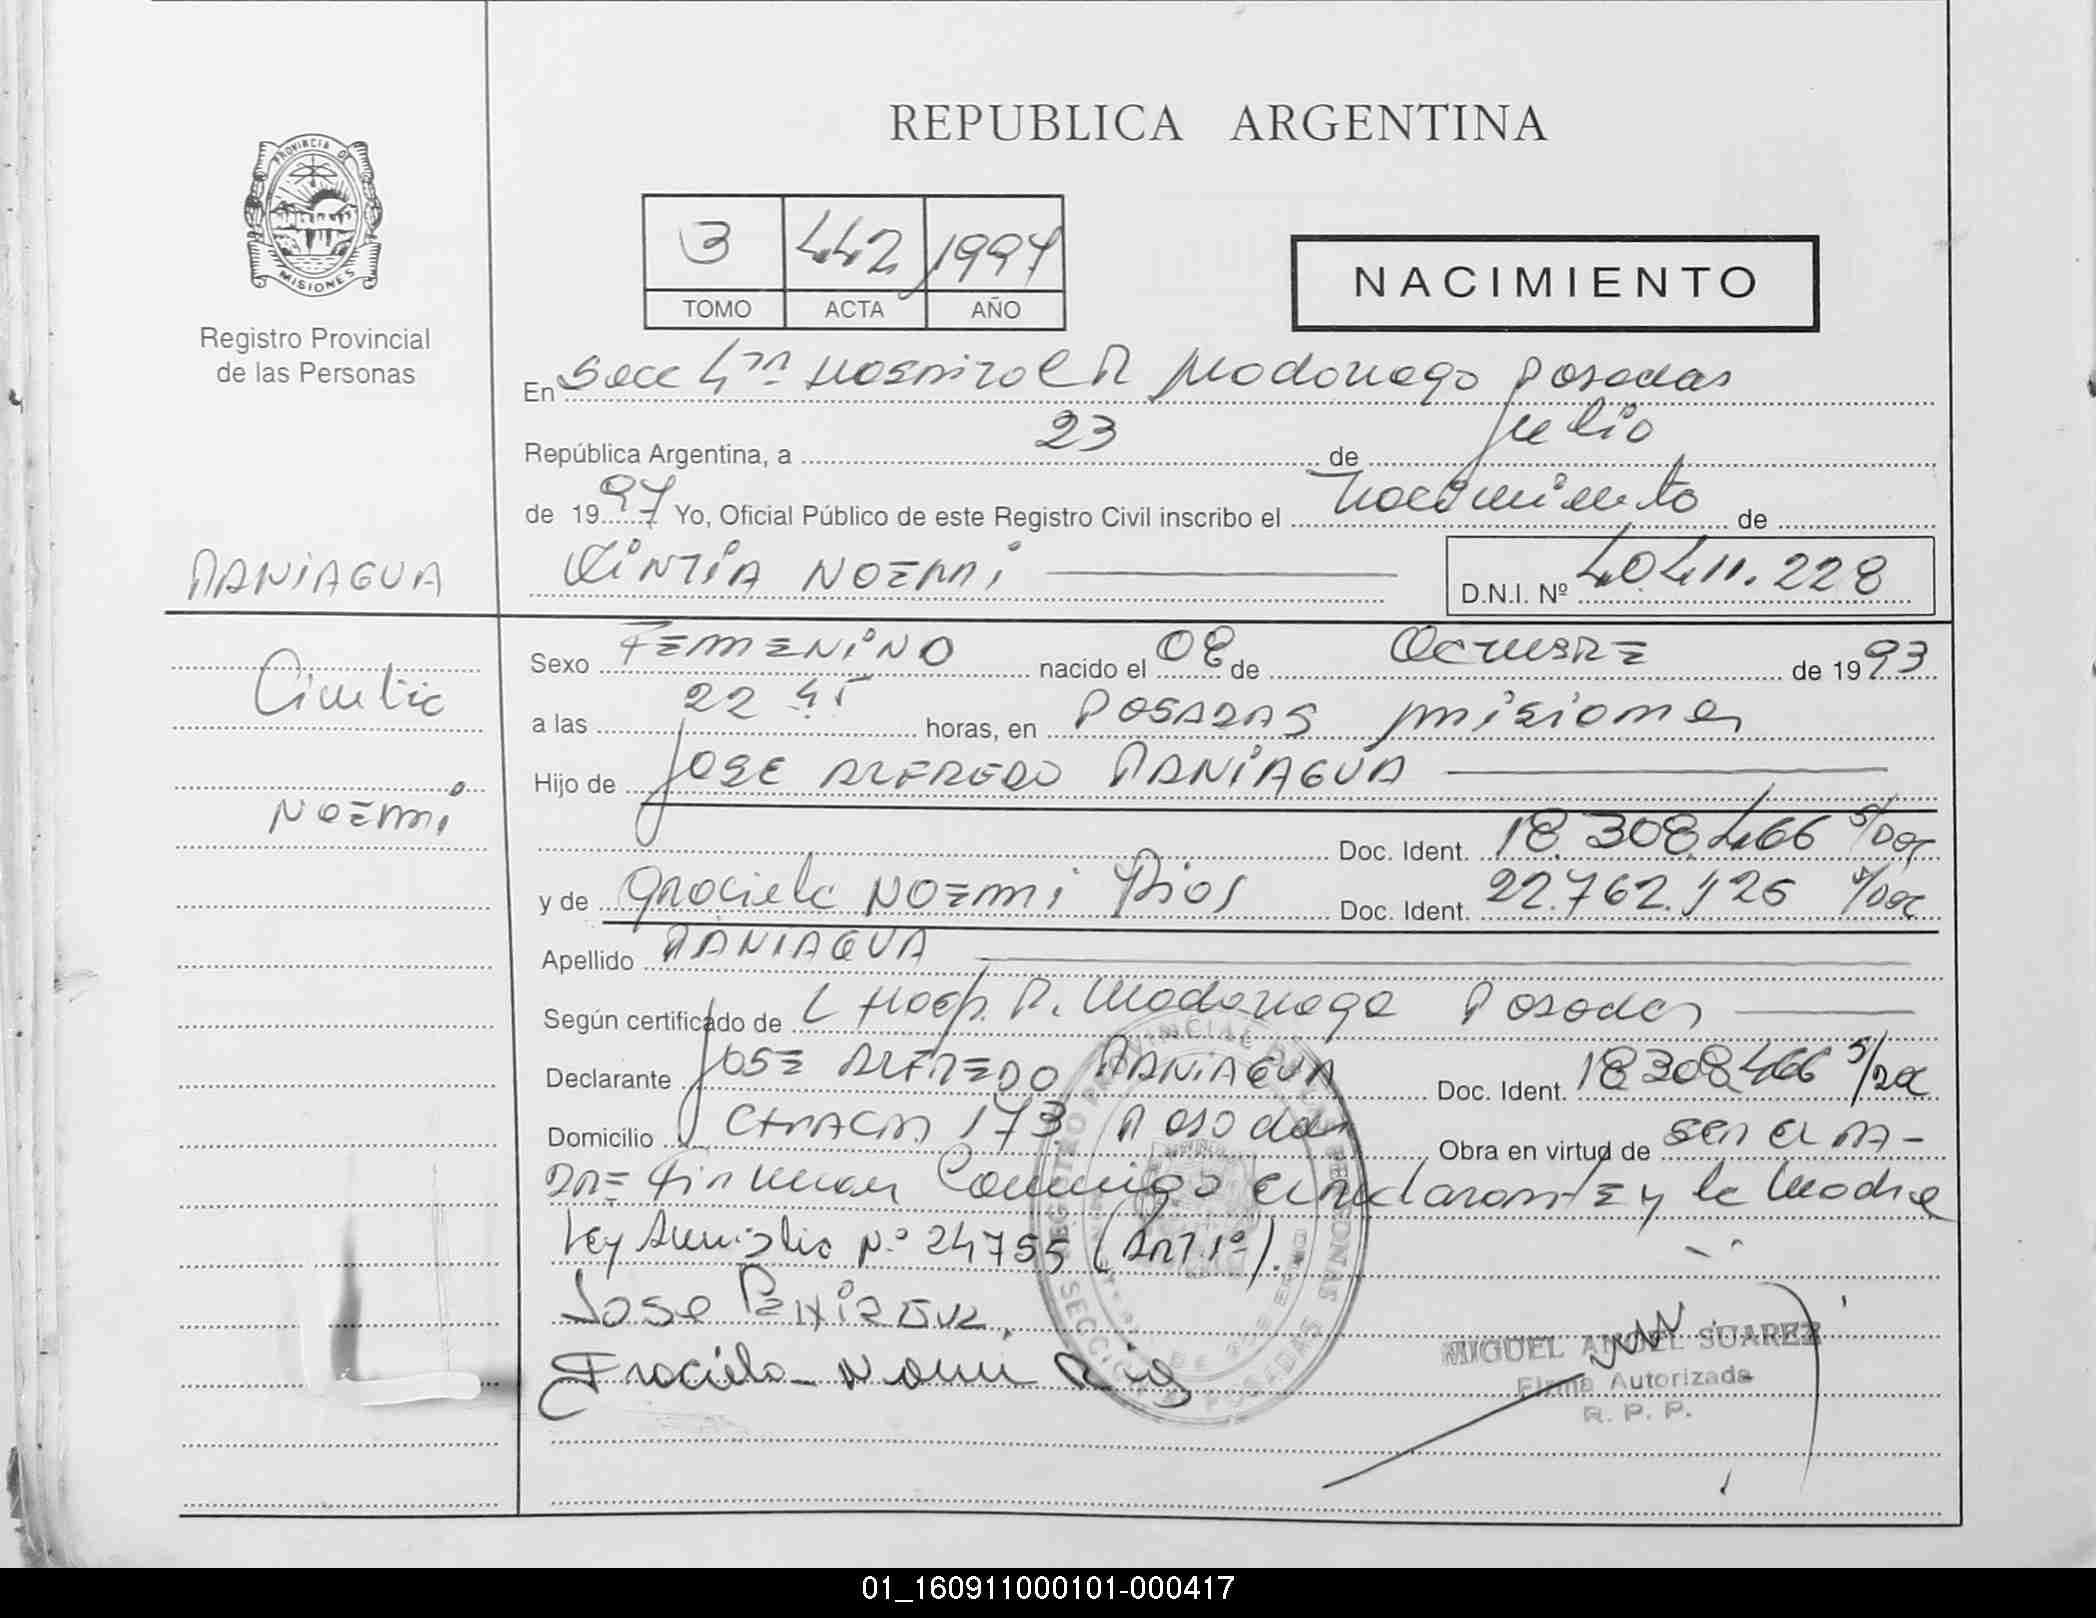 REPUBLICA ARGENTINA
PROVINCIA DE
MISIONES
Registro Provincial
de las Personas
3 442 1997
TOMO ACTA AÑO
NACIMIENTO
En Secc 4ta Hospital R Madariaga Posadas
República Argentina, a 23 de Julio
de 1997 Yo, Oficial Público de este Registro Civil inscribo el nacimiento de
PANIAGUA
CINTIA NOEMI
D.N.I. Nº 40411.228
Cintia
NOEMI
Sexo FEMENINO nacido el 08 de OCTUBRE de 1993
a las 22 45 horas, en POSADAS misiones
Hijo de JOSE ALFREDO PANIAGUA
Doc. Ident. 18.308.466 S/Doc
y de Graciela NOEMI Rios Doc. Ident. 22.762.125 S/Doc
Apellido PANIAGUA
Según certificado de L Hosp. R. Madariaga Posadas
Declarante JOSE ALFREDO PANIAGUA Doc. Ident. 18308466 S/Doc
Domicilio CHACRA 173 Posadas Obra en virtud de ser el PA-
DRE Firman Conmigo el declarante y la Madre
Ley Amnistia N.º 24755 (ART.1º).
Jose
Graciela Noemi Rios
REGISTRO PROVINCIAL DE LAS PERSONAS
POSADAS
MIGUEL ANGEL SUAREZ
Firma Autorizada
R. P. P.
01_160911000101-000417